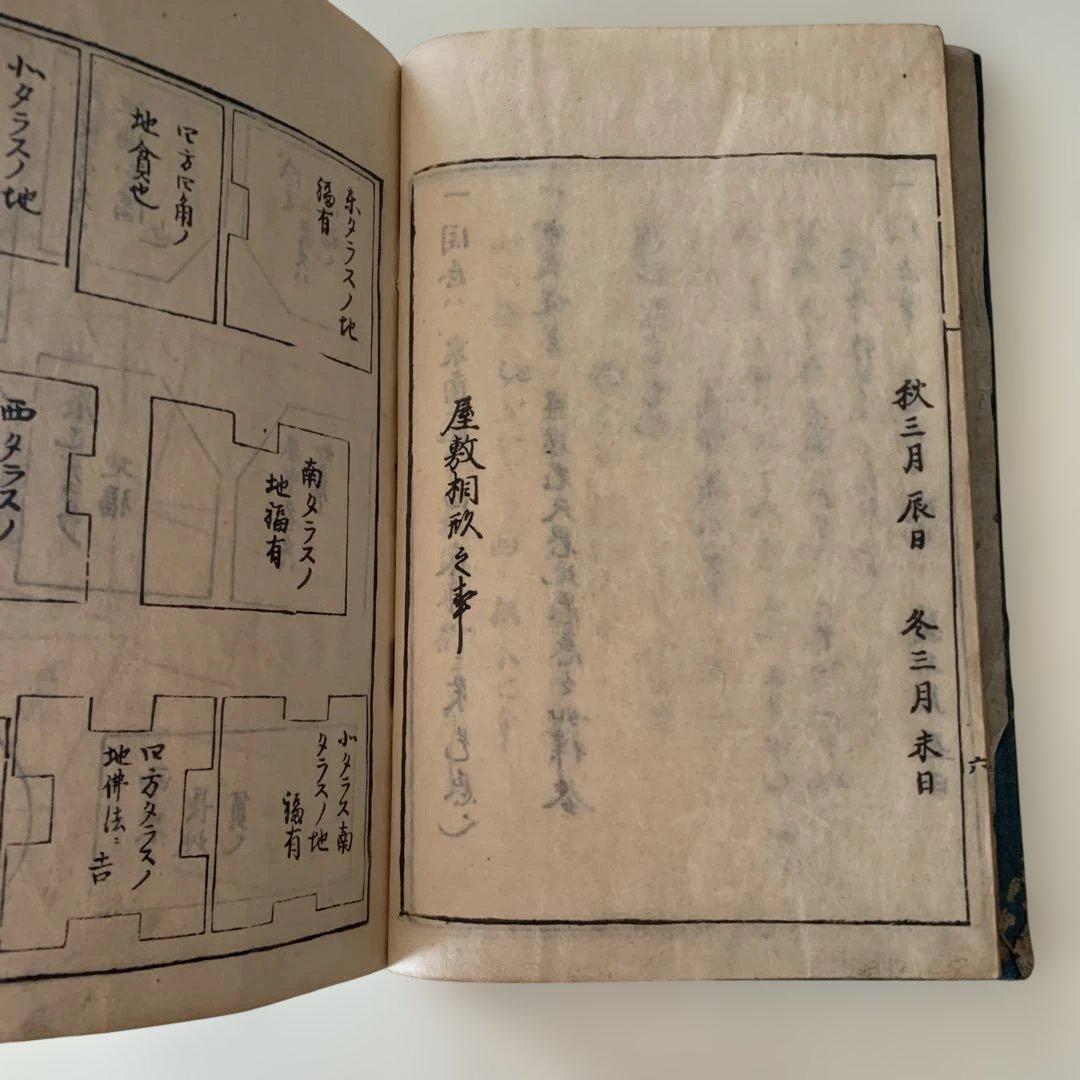 秋三月 辰日 冬三月 未日
屋敷相形之事
六
東タラスノ地
福有
四方四角ノ
地貧也
北タラスノ地
南タラスノ
地福有
西タラスノ
北タラス南
タラスノ地
福有
四方タラスノ
地佛法ニ吉